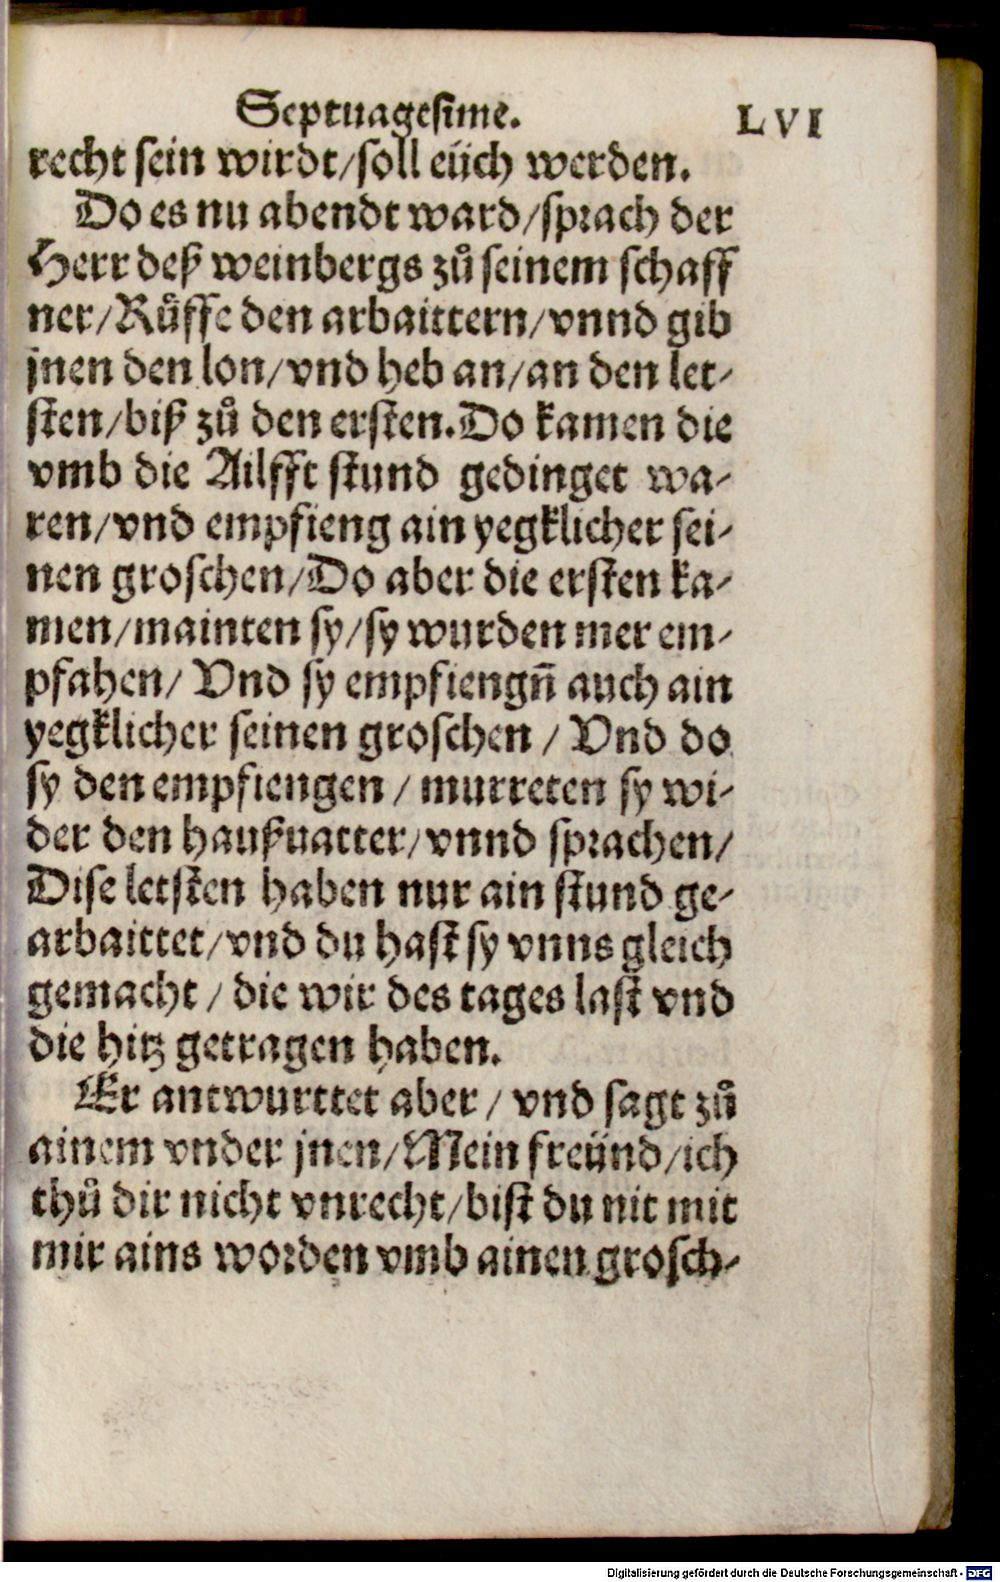 Septuagesime. LVI
recht sein wirdt/soll eüch werden.
Do es nu abendt ward/sprach der
Herr deß weinbergs zů seinem schaff
ner/Růffe den arbaittern/vnnd gib
jnen den lon/vnd heb an/an den let-
sten/biß zů den ersten. Do kamen die
vmb die Ailfft stund gedinget wa-
ren/vnd empfieng ain yegklicher sei-
nen groschen/Do aber die ersten ka-
men/mainten sy/sy wurden mer em-
pfahen/ Vnd sy empfiengn̄ auch ain
yegklicher seinen groschen / Vnd do
sy den empfiengen / murreten sy wi-
der den haußuatter/vnnd sprachen/
Dise letsten haben nur ain stund ge-
arbaittet/vnd du hast sy vnns gleich
gemacht / die wir des tages last vnd
die hitz getragen haben.
Er antwurttet aber / vnd sagt zů
ainem vnder jnen/Mein freünd/ich
thů dir nicht vnrecht/bist du nit mit
mir ains worden vmb ainen grosch-
Digitalisierung gefördert durch die Deutsche Forschungsgemeinschaft - DFG